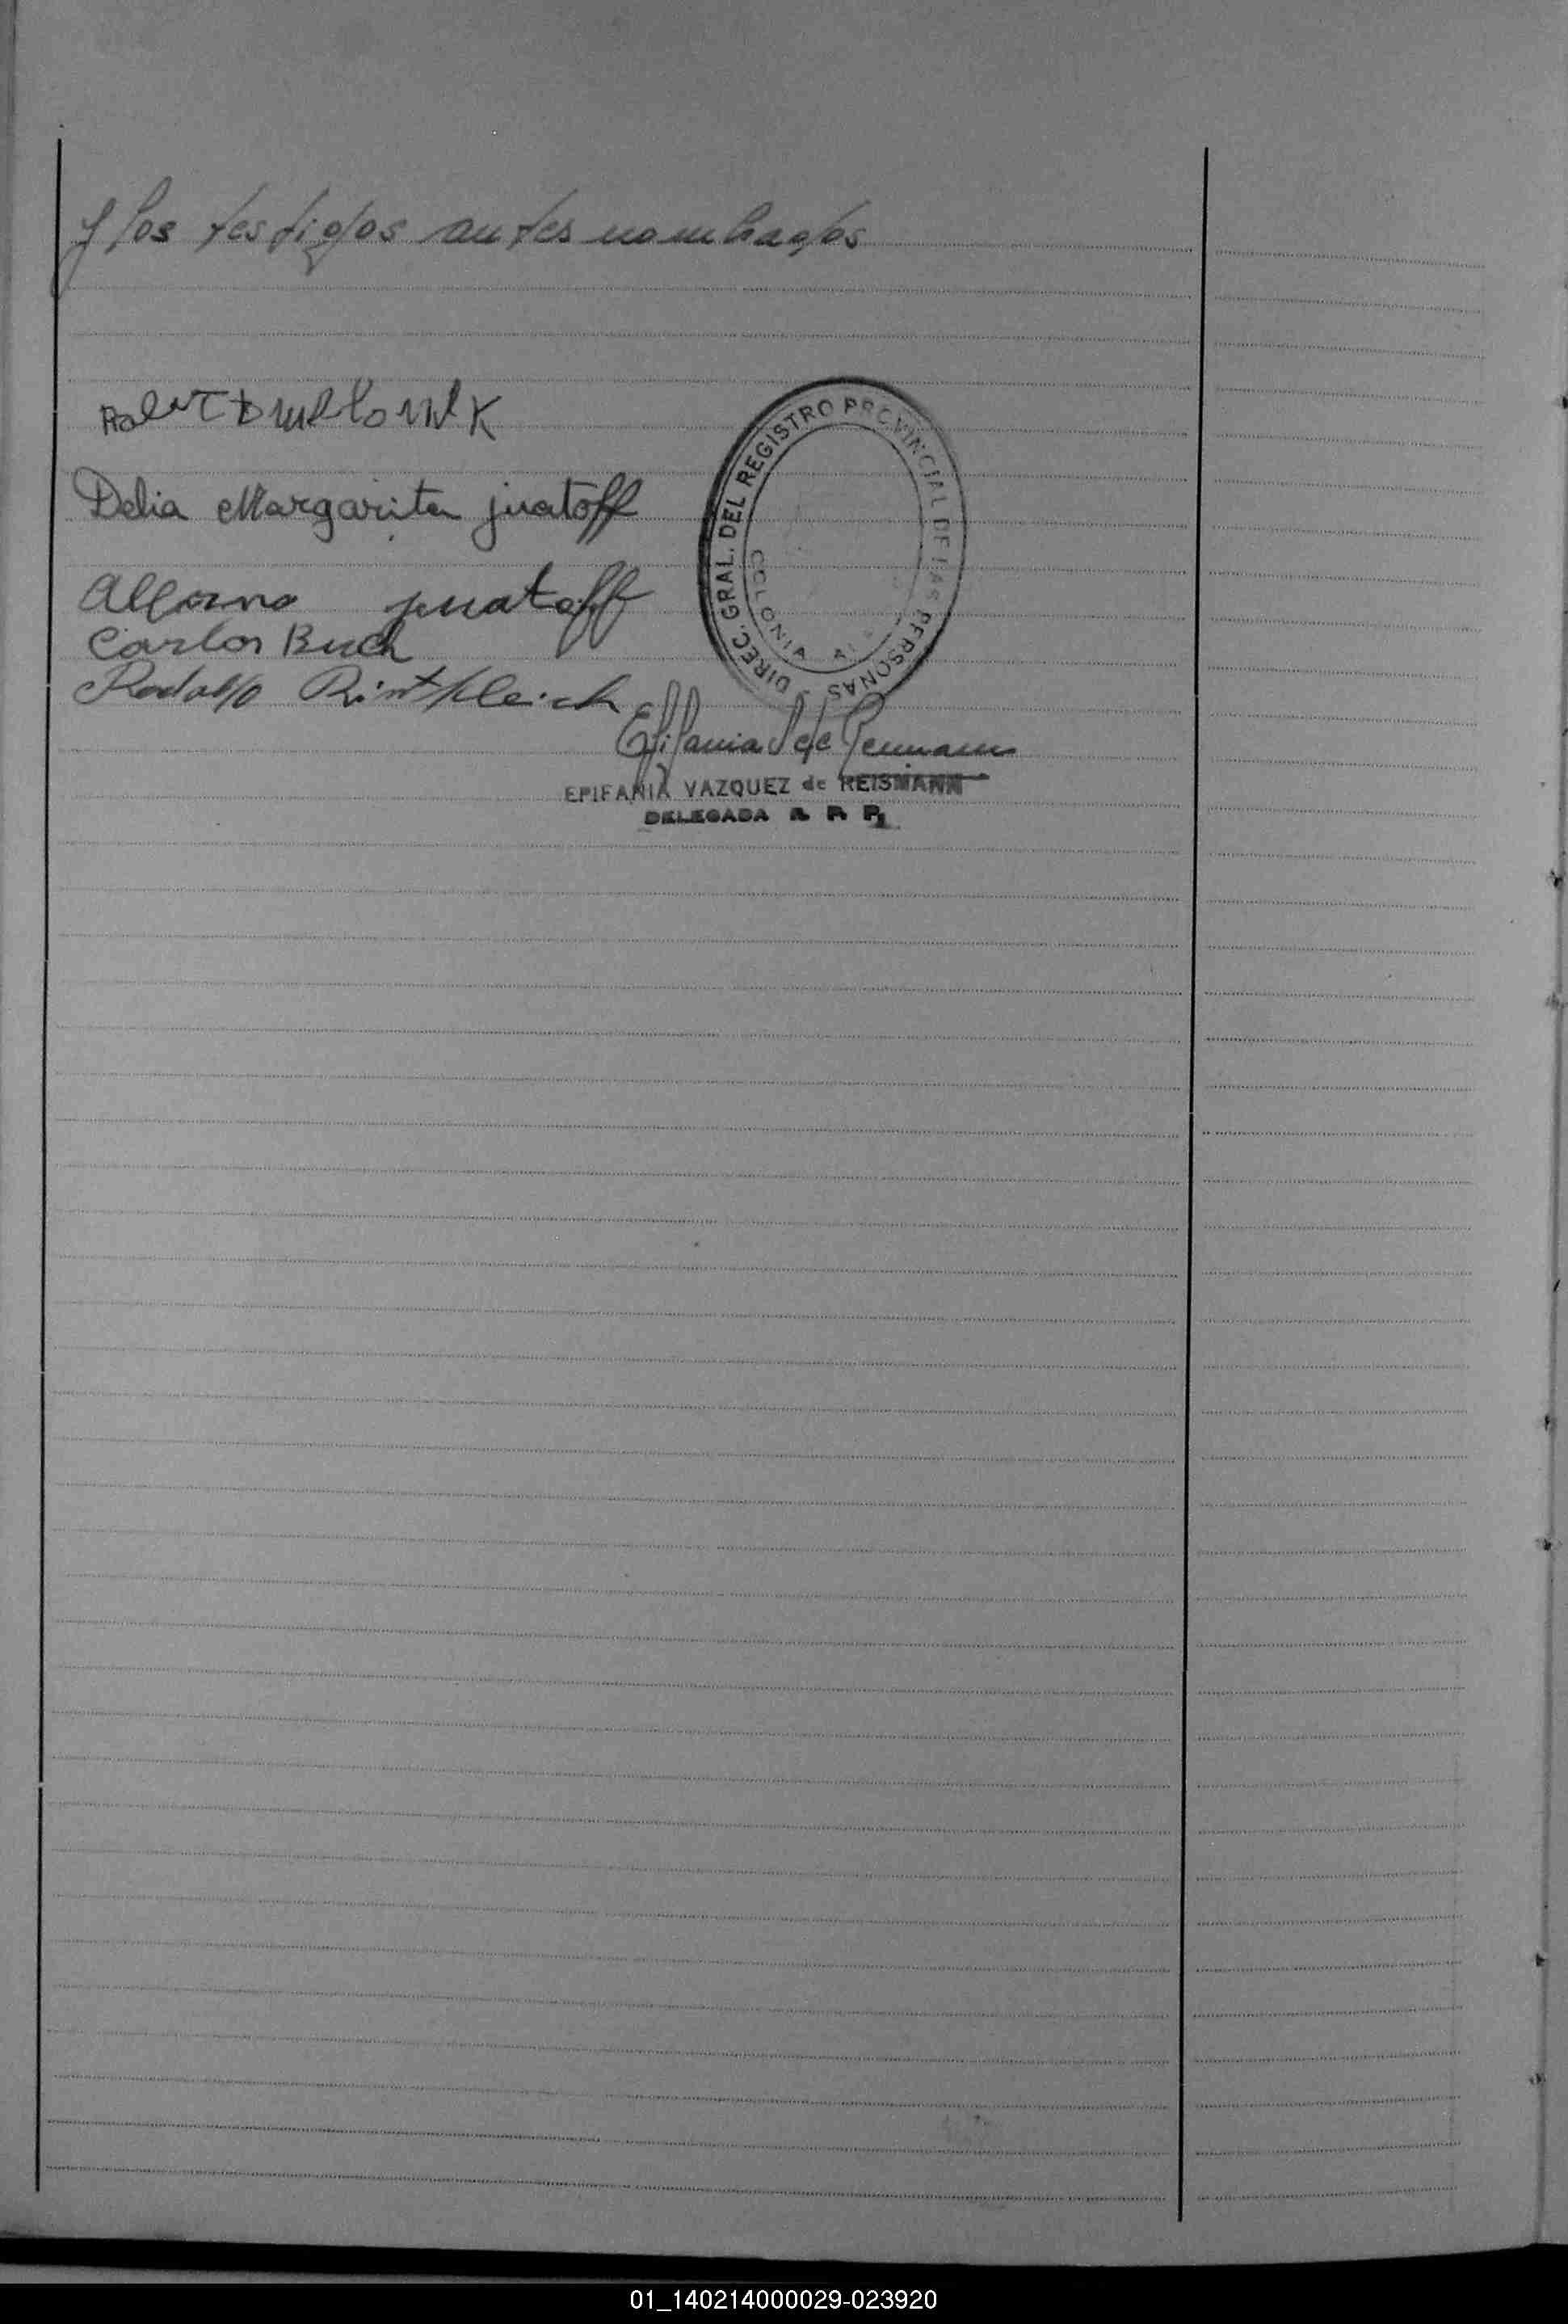 y los testigos antes nombrados
Delia Margarita juatoff
juatoff
Carlos Buch
Rodolfo Rintkleisch
DIREC. GRAL. DEL REGISTRO PROVINCIAL DE LAS PERSONAS
COLONIA
Epifania V de Reismann
EPIFANIA VAZQUEZ de REISMANN
DELEGADA R. P. P.
01_140214000029-023920